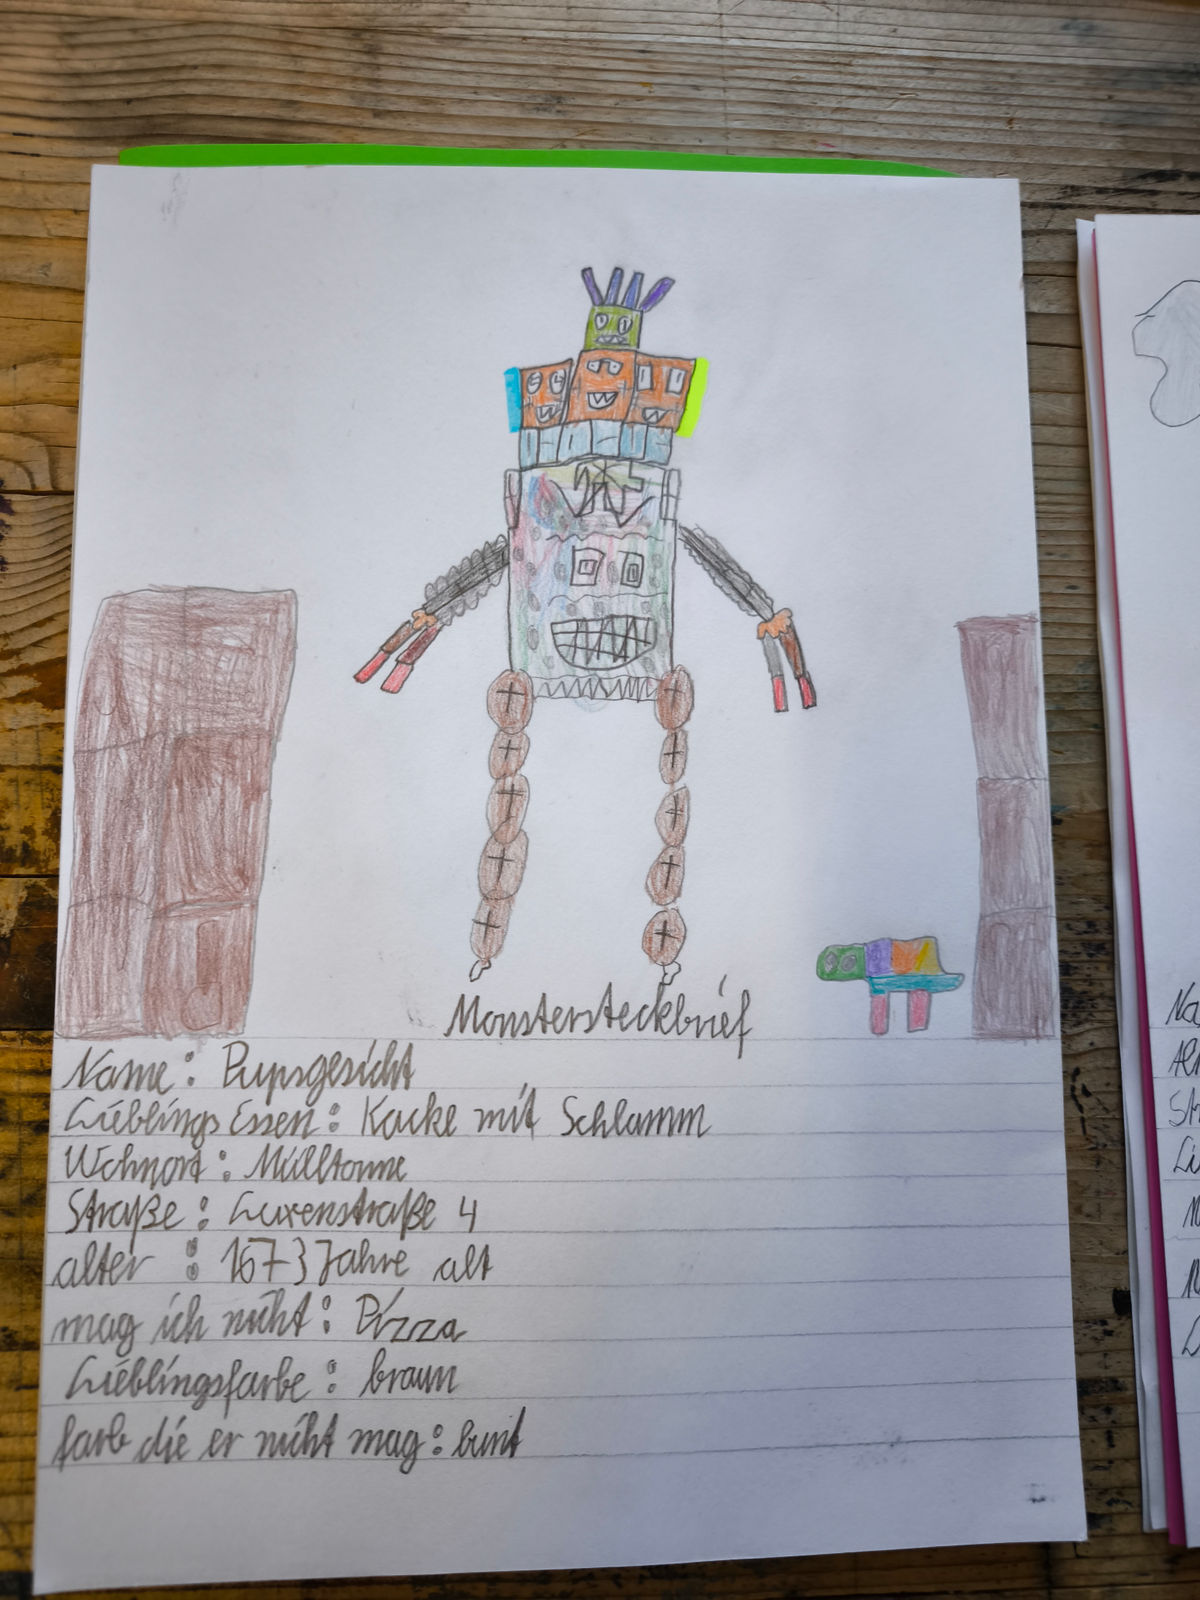 Monstersteckbrief
Name: Pupsgesicht
Lieblings Essen: Kacke mit Schlamm
Wohnort: Mülltonne
Straße: Luxenstraße 4
alter: 1673 Jahre alt
mag ich nicht: Pizza
Lieblingsfarbe: braun
farb die er nicht mag: bunt
Na